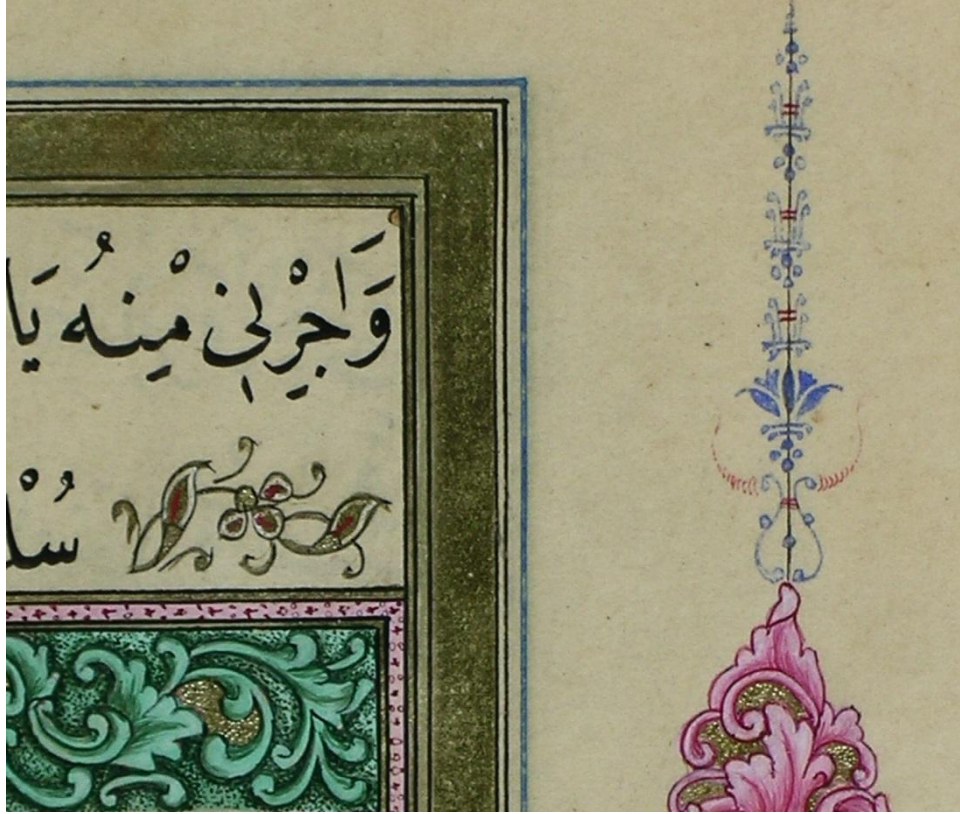 وَاَجِرْنٖى مِنْهُ يَا
سُلْ